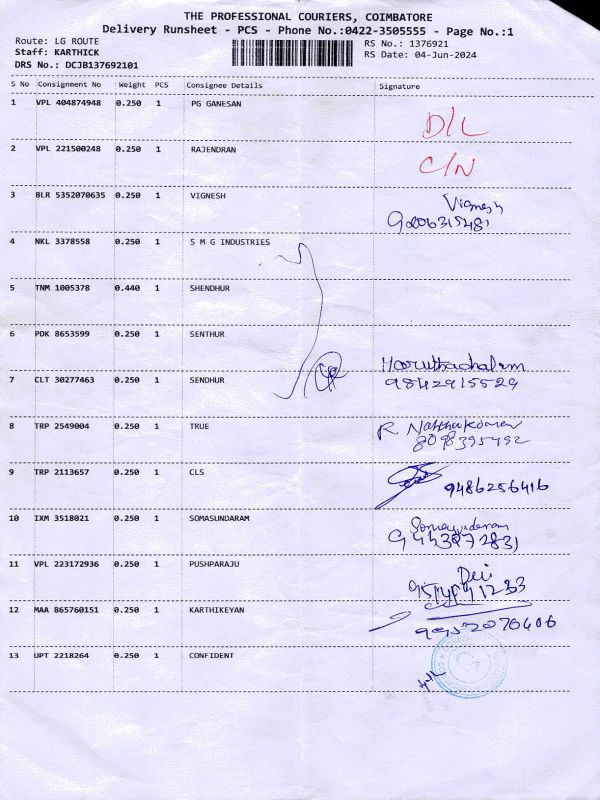 THE PROFESSIONAL COURIERS, COIMBATORE
Delivery Runsheet - PCS - Phone No.:0422-3505555 - Page No.:1
Route: LG ROUTE
Staff: KARTHICK
DRS No.: DCJB137692101
RS No.: 1376921
RS Date: 04-Jun-2024
S No Consignment No Weight PCS Consignee Details Signature
1 VPL 404874948 0.250 1 PG GANESAN
D/L
2 VPL 221500248 0.250 1 RAJENDRAN
C/N
3 BLR 5352070635 0.250 1 VIGNESH Vignesh
92006315481
4 NKL 3378558 0.250 1 S M G INDUSTRIES
5 TNM 1005378 0.440 1 SHENDHUR
6 PDK 8653599 0.250 1 SENTHUR
7 CLT 30277463 0.250 1 SENDHUR
9842915529
8 TRP 2549004 0.250 1 TRUE R.
8098395492
9 TRP 2113657 0.250 1 CLS
9486256416
10 IXM 3518021 0.250 1 SOMASUNDARAM Somasundaram
11 VPL 223172936 0.250 1 PUSHPARAJU Devi
12 MAA 865760151 0.250 1 KARTHIKEYAN
13 UPT 2218264 0.250 1 CONFIDENT